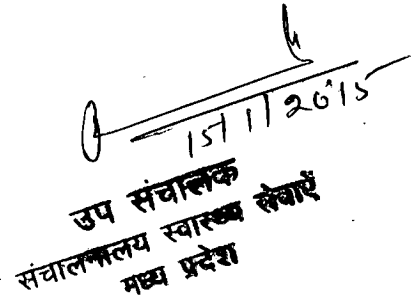 15/1/2015
उप संचालक
संचालनालय स्वास्थ्य सेवाऐं
मध्य प्रदेश